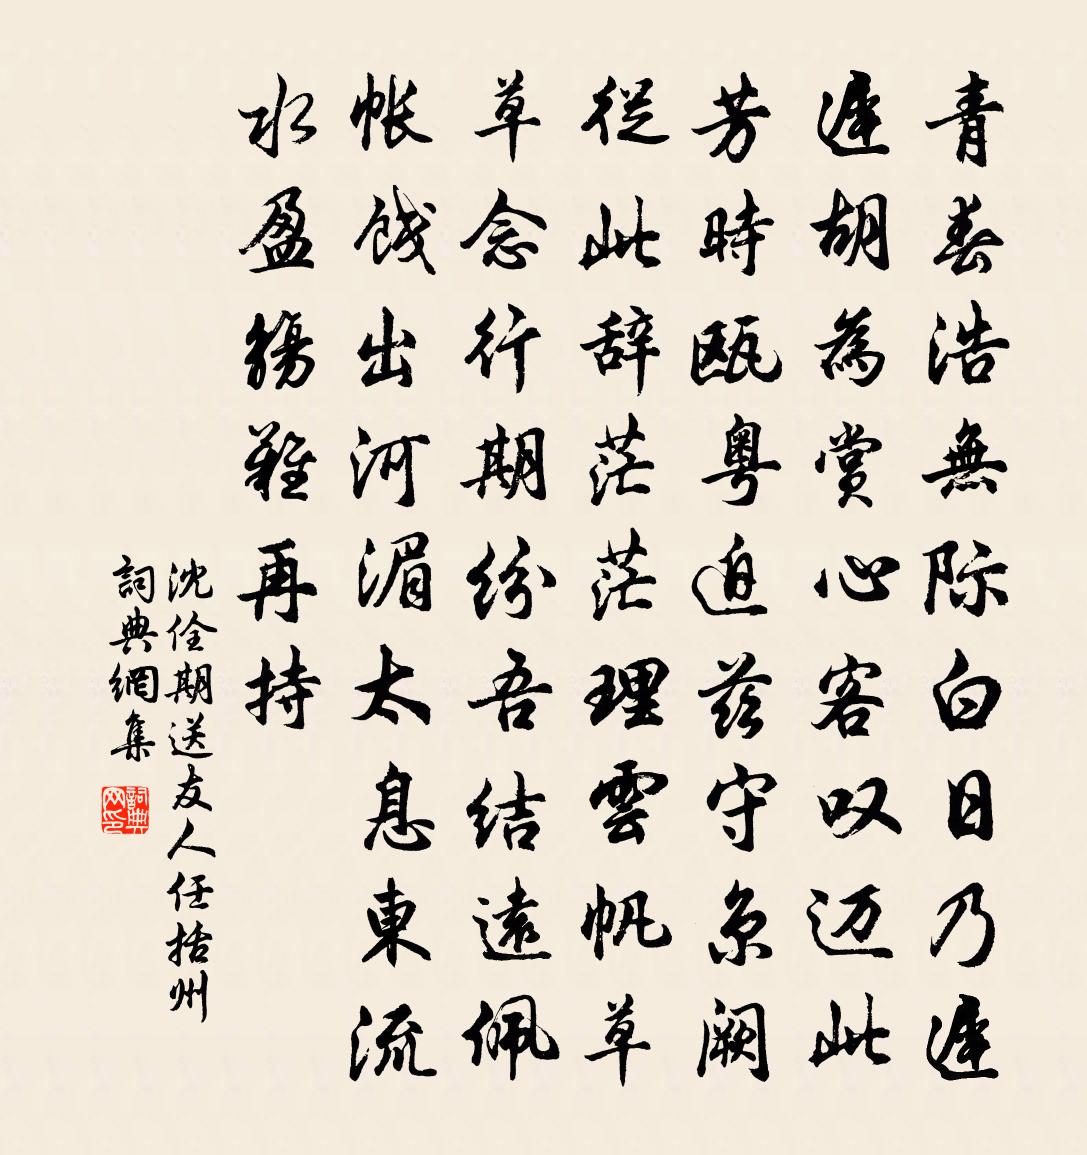 青春浩無际白日乃遲
遲胡為赏心客叹迈此
芳時瓯粤迫兹守京阙
從此辞茫茫理雲帆草
草念行期纷吾结遠佩
帐饯出河湄太息東流
水盈觴難再持
沈佺期送友人任括州
詞典網集
詞典网印